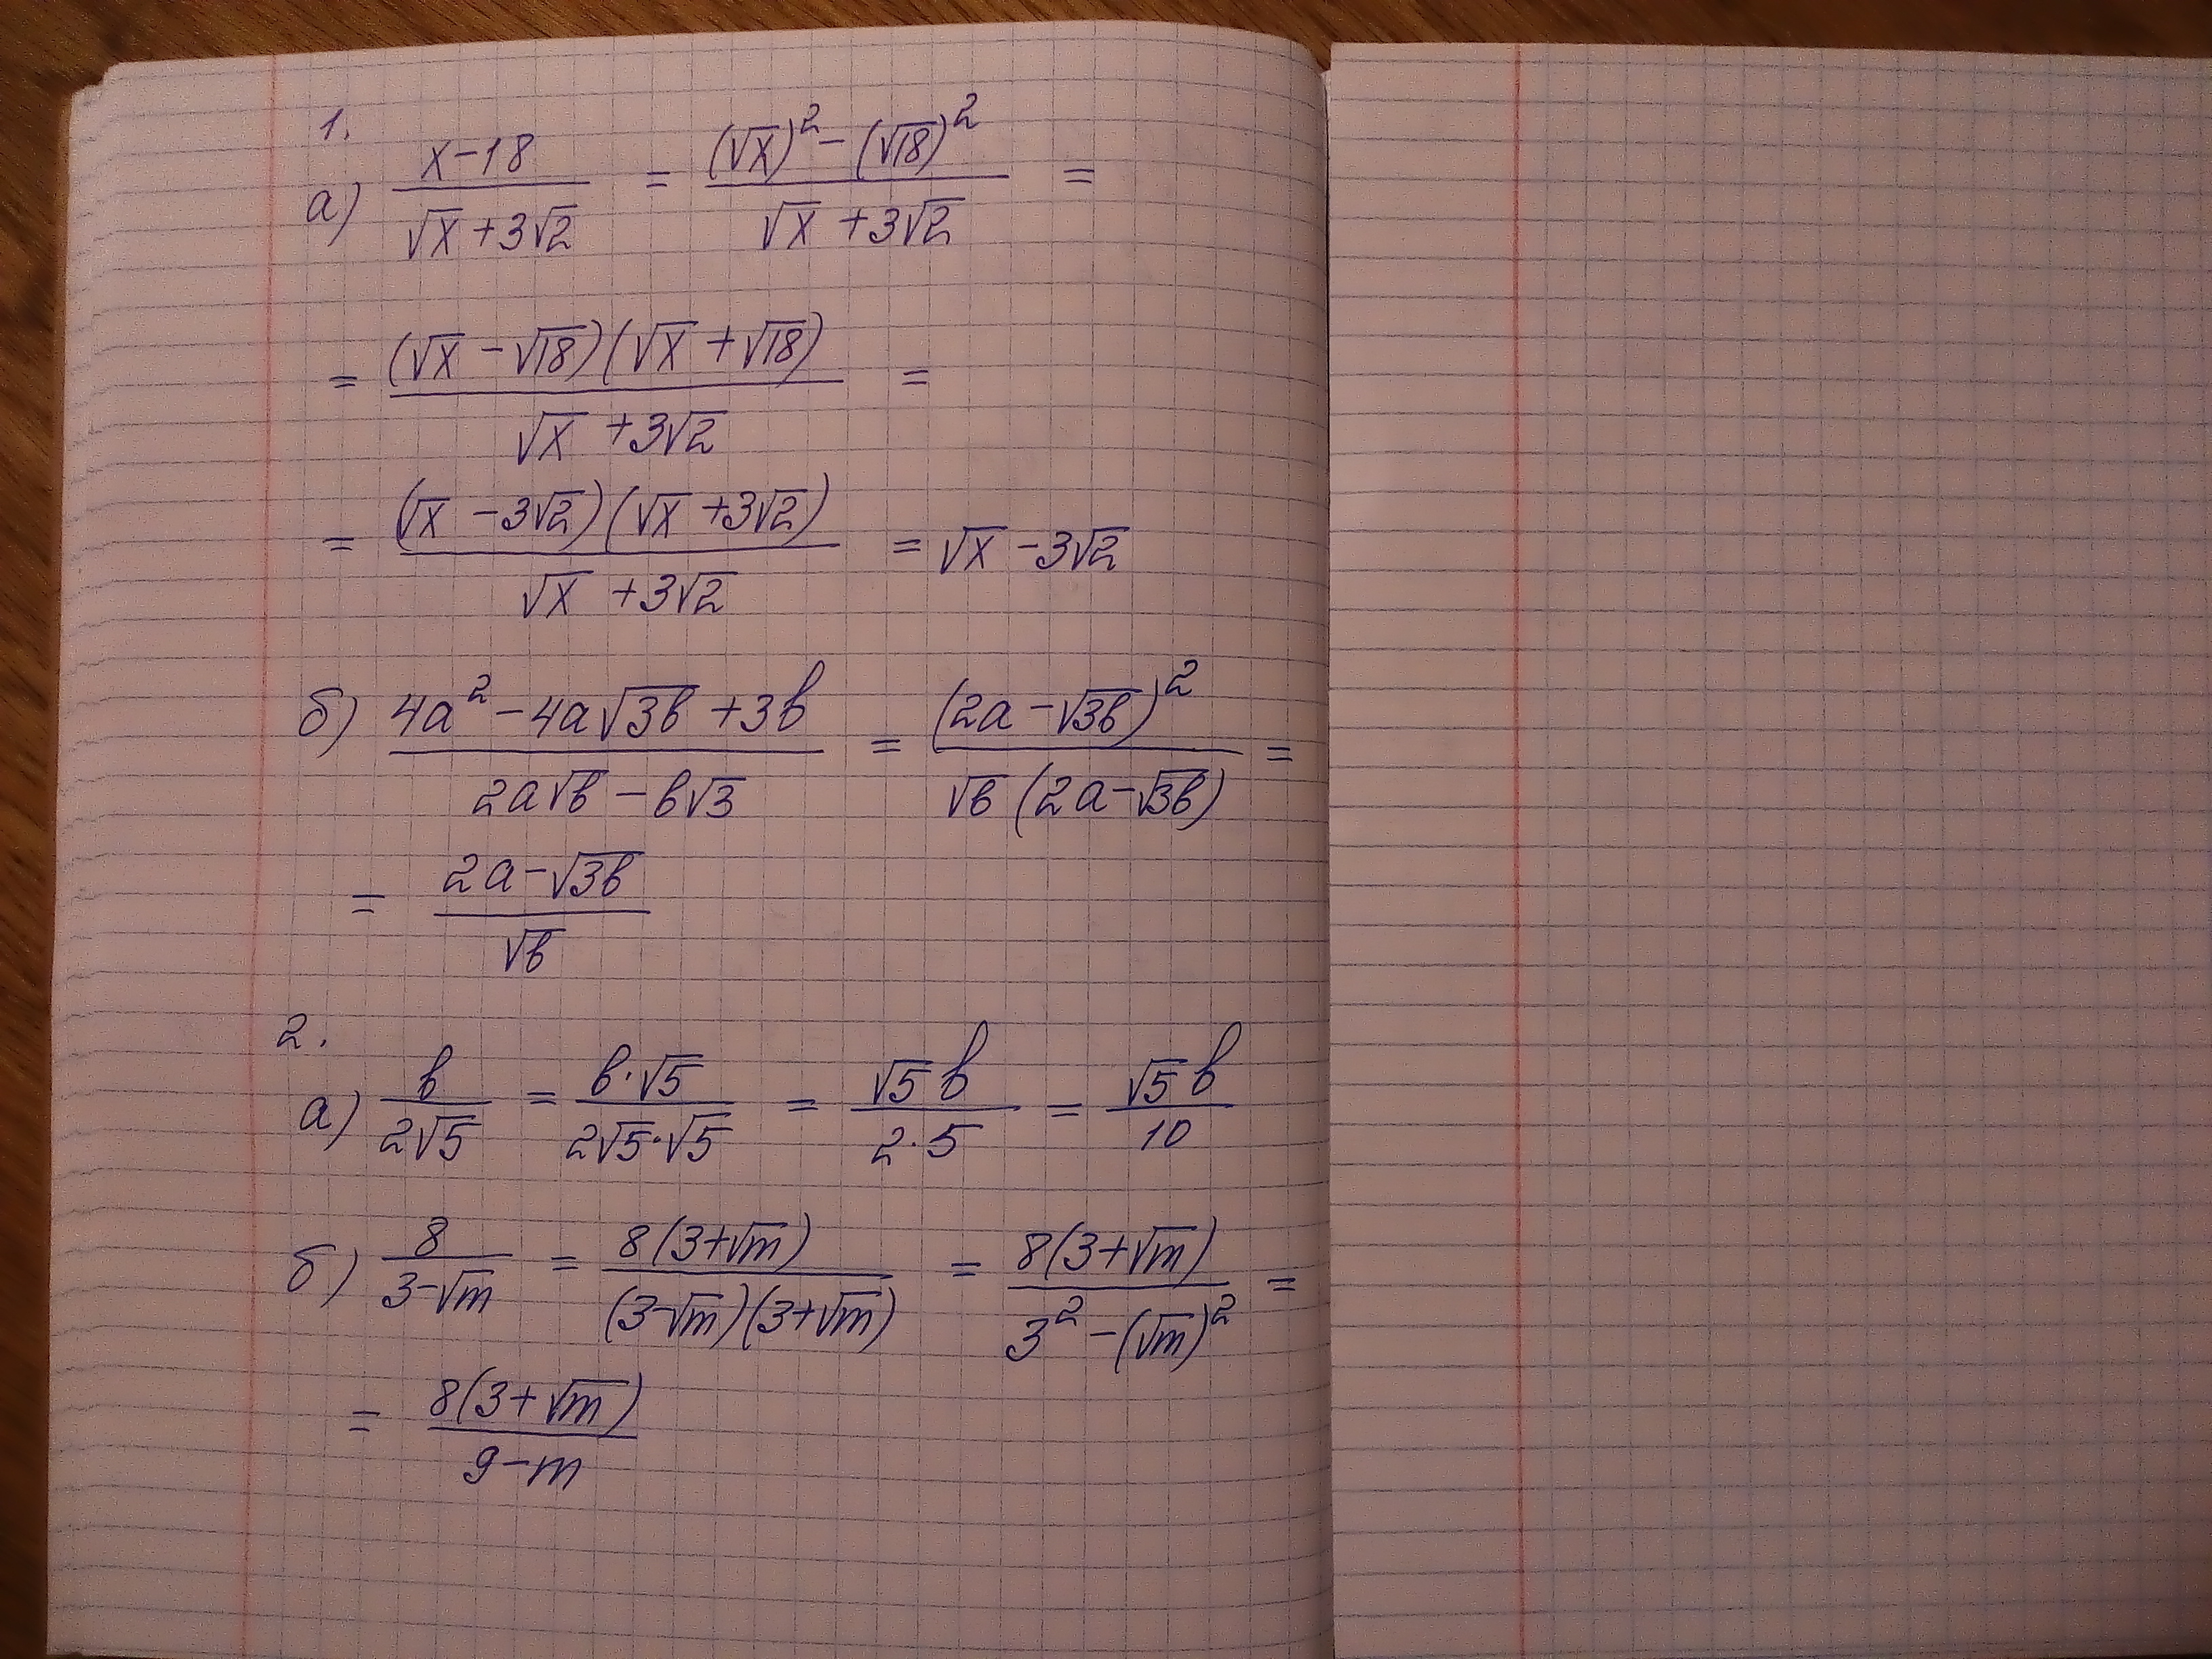 1.
а) (x-18)/(√x+3√2) = ((√x)²-(√18)²)/(√x+3√2) =
= ((√x-√18)(√x+√18))/(√x+3√2) =
= ((√x-3√2)(√x+3√2))/(√x+3√2) = √x-3√2
б) (4a²-4a√(3b)+3b)/(2a√b-b√3) = (2a-√(3b))²/(√b(2a-√(3b))) =
= (2a-√(3b))/√b
2.
а) b/(2√5) = (b·√5)/(2√5·√5) = (√5b)/(2·5) = (√5b)/10
б) 8/(3-√m) = (8(3+√m))/((3-√m)(3+√m)) = (8(3+√m))/(3²-(√m)²) =
= (8(3+√m))/(9-m)